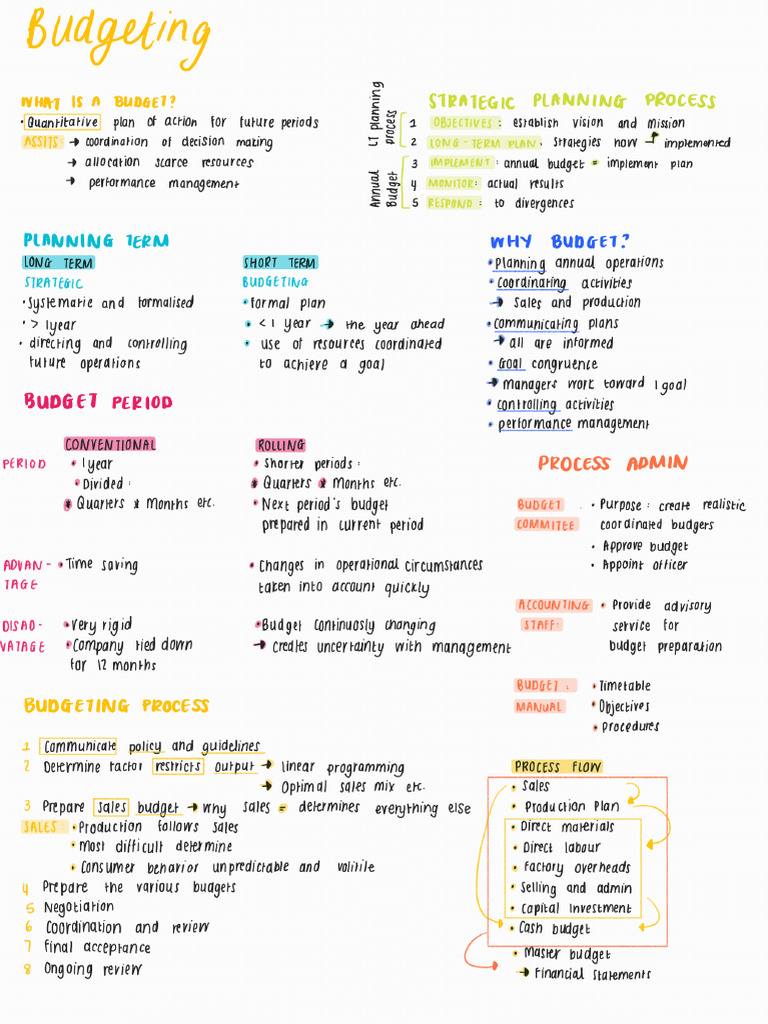 Budgeting
WHAT IS A BUDGET?
• Quantitative plan of action for future periods
ASSITS: → coordination of decision making
→ allocation scarce resources
→ performance management
STRATEGIC PLANNING PROCESS
LT planning process
1 OBJECTIVES: establish vision and mission
2 LONG-TERM PLAN: strategies how → implemented
Annual Budget
3 IMPLEMENT: annual budget = implement plan
4 MONITOR: actual results
5 RESPOND: to divergences
PLANNING TERM
LONG TERM
STRATEGIC
• Systematic and formalised
• > 1year
• directing and controlling
future operations
SHORT TERM
BUDGETING
• formal plan
• < 1 year → the year ahead
• use of resources coordinated
to achieve a goal
WHY BUDGET?
• Planning annual operations
• coordinating activities
→ Sales and production
• communicating plans
→ all are informed
• Goal congruence
→ managers work toward 1 goal
• controlling activities
• performance management
BUDGET PERIOD
CONVENTIONAL
ROLLING
PERIOD
• 1year
• Divided:
* Quarters * months etc.
• Shorter periods:
* Quarters * months etc.
• Next period's budget
prepared in current period
ADVAN-
TAGE
• Time saving
• Changes in operational circumstances
taken into account quickly
DISAD-
VATAGE
• Very rigid
• Company tied down
for 12 months
• Budget continuosly changing
→ creates uncertainty with management
PROCESS ADMIN
BUDGET
COMMITEE
• Purpose: create realistic
coordinated budgets
• Approve budget
• Appoint officer
ACCOUNTING
STAFF:
• Provide advisory
service for
budget preparation
BUDGET:
MANUAL
• Timetable
• Objectives
• Procedures
BUDGETING PROCESS
1 Communicate policy and guidelines
2 Determine factor restricts output → linear programming
→ Optimal sales mix etc.
3 Prepare sales budget → why sales = determines everything else
SALES: • Production follows sales
• most difficult determine
• Consumer behavior unpredictable and volitile
4 Prepare the various budgets
5 Negotiation
6 Coordination and review
7 final acceptance
8 Ongoing review
PROCESS FLOW
• Sales
• Production Plan
• Direct materials
• Direct labour
• Factory overheads
• Selling and admin
• Capital Investment
• Cash budget
• Master budget
→ Financial statements